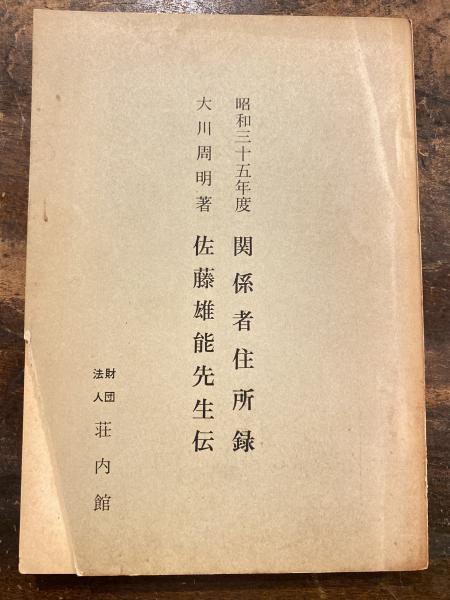 昭和三十五年度 関係者住所録
大川周明著 佐藤雄能先生伝
財団法人 荘内館